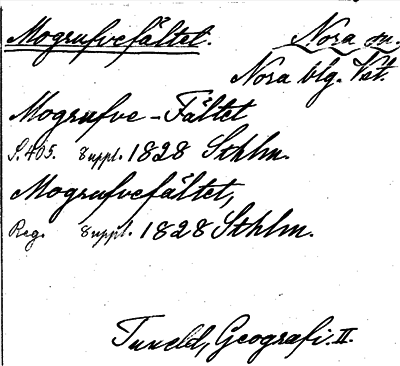 Mogrufvefältet. Nora sn.
Nora blg. Vät.
Mogrufve-Fältet
S. 405. Suppl. 1828 Sthlm.
Mogrufvefältet,
Reg. Suppl. 1828 Sthlm.
Tuneld, Geografi. II.